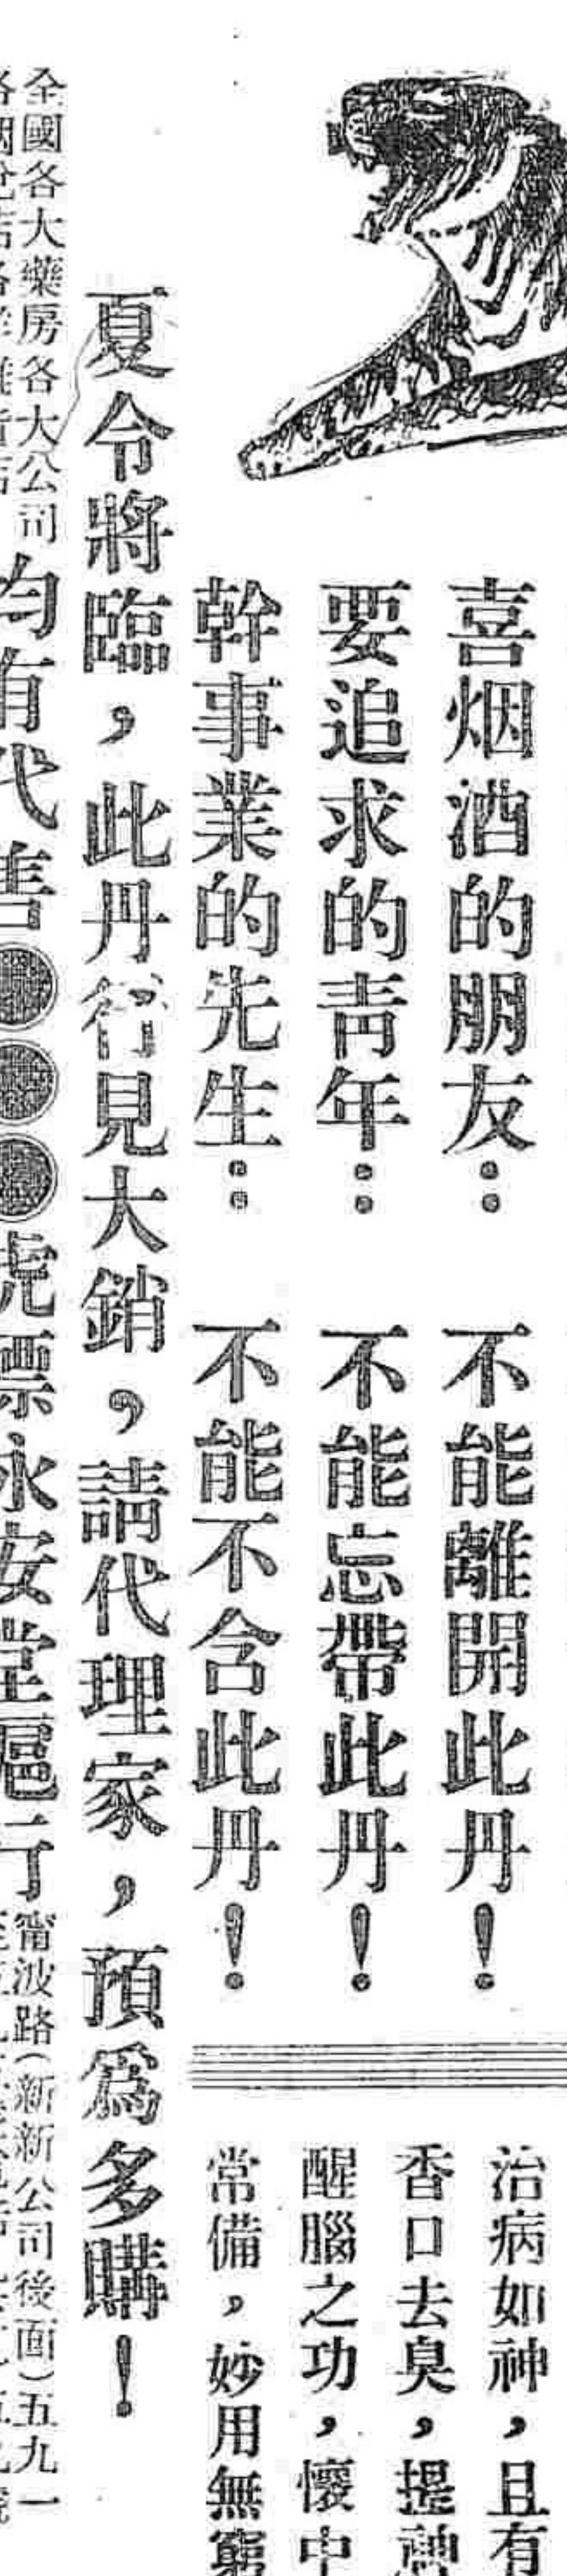 喜烟酒的朋友： 不能離開此丹！
要追求的青年： 不能忘帶此丹！
幹事業的先生： 不能不含此丹！
治病如神，且有
香口去臭，提神
醒腦之功，懷中
常備，妙用無窮
夏令將臨，此丹行見大銷，請代理家，預爲多購！
全國各大藥房各大公司
均有代售●●●虎標永安堂滬行
甯波路（新新公司後面）五九一